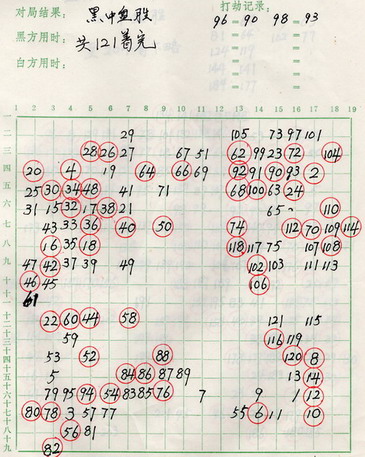 对局结果: 黑中盘胜 打劫记录:
黑方用时: 共121着完 96 = 90 98 = 93
白方用时:
1 2 3 4 5 6 7 8 9 10 11 12 13 14 15 16 17 18 19
29 105 73 97 101
28 26 27 67 51 62 99 23 72 104
20 4 19 64 66 69 92 91 90 93 2
25 30 34 48 41 71 68 100 63 24
31 15 32 17 38 21 65 110
43 33 36 40 50 74 112 70 109 114
16 35 18 118 117 75 107 108
47 42 37 39 49 102 103 111 113
46 45 106
61
22 60 44 58 121 115
59 116 119
53 52 88 120 8
5 84 86 87 89 13 14
79 95 94 54 83 85 76 7 9 1 12
80 78 3 57 77 55 6 11 10
56 81
82